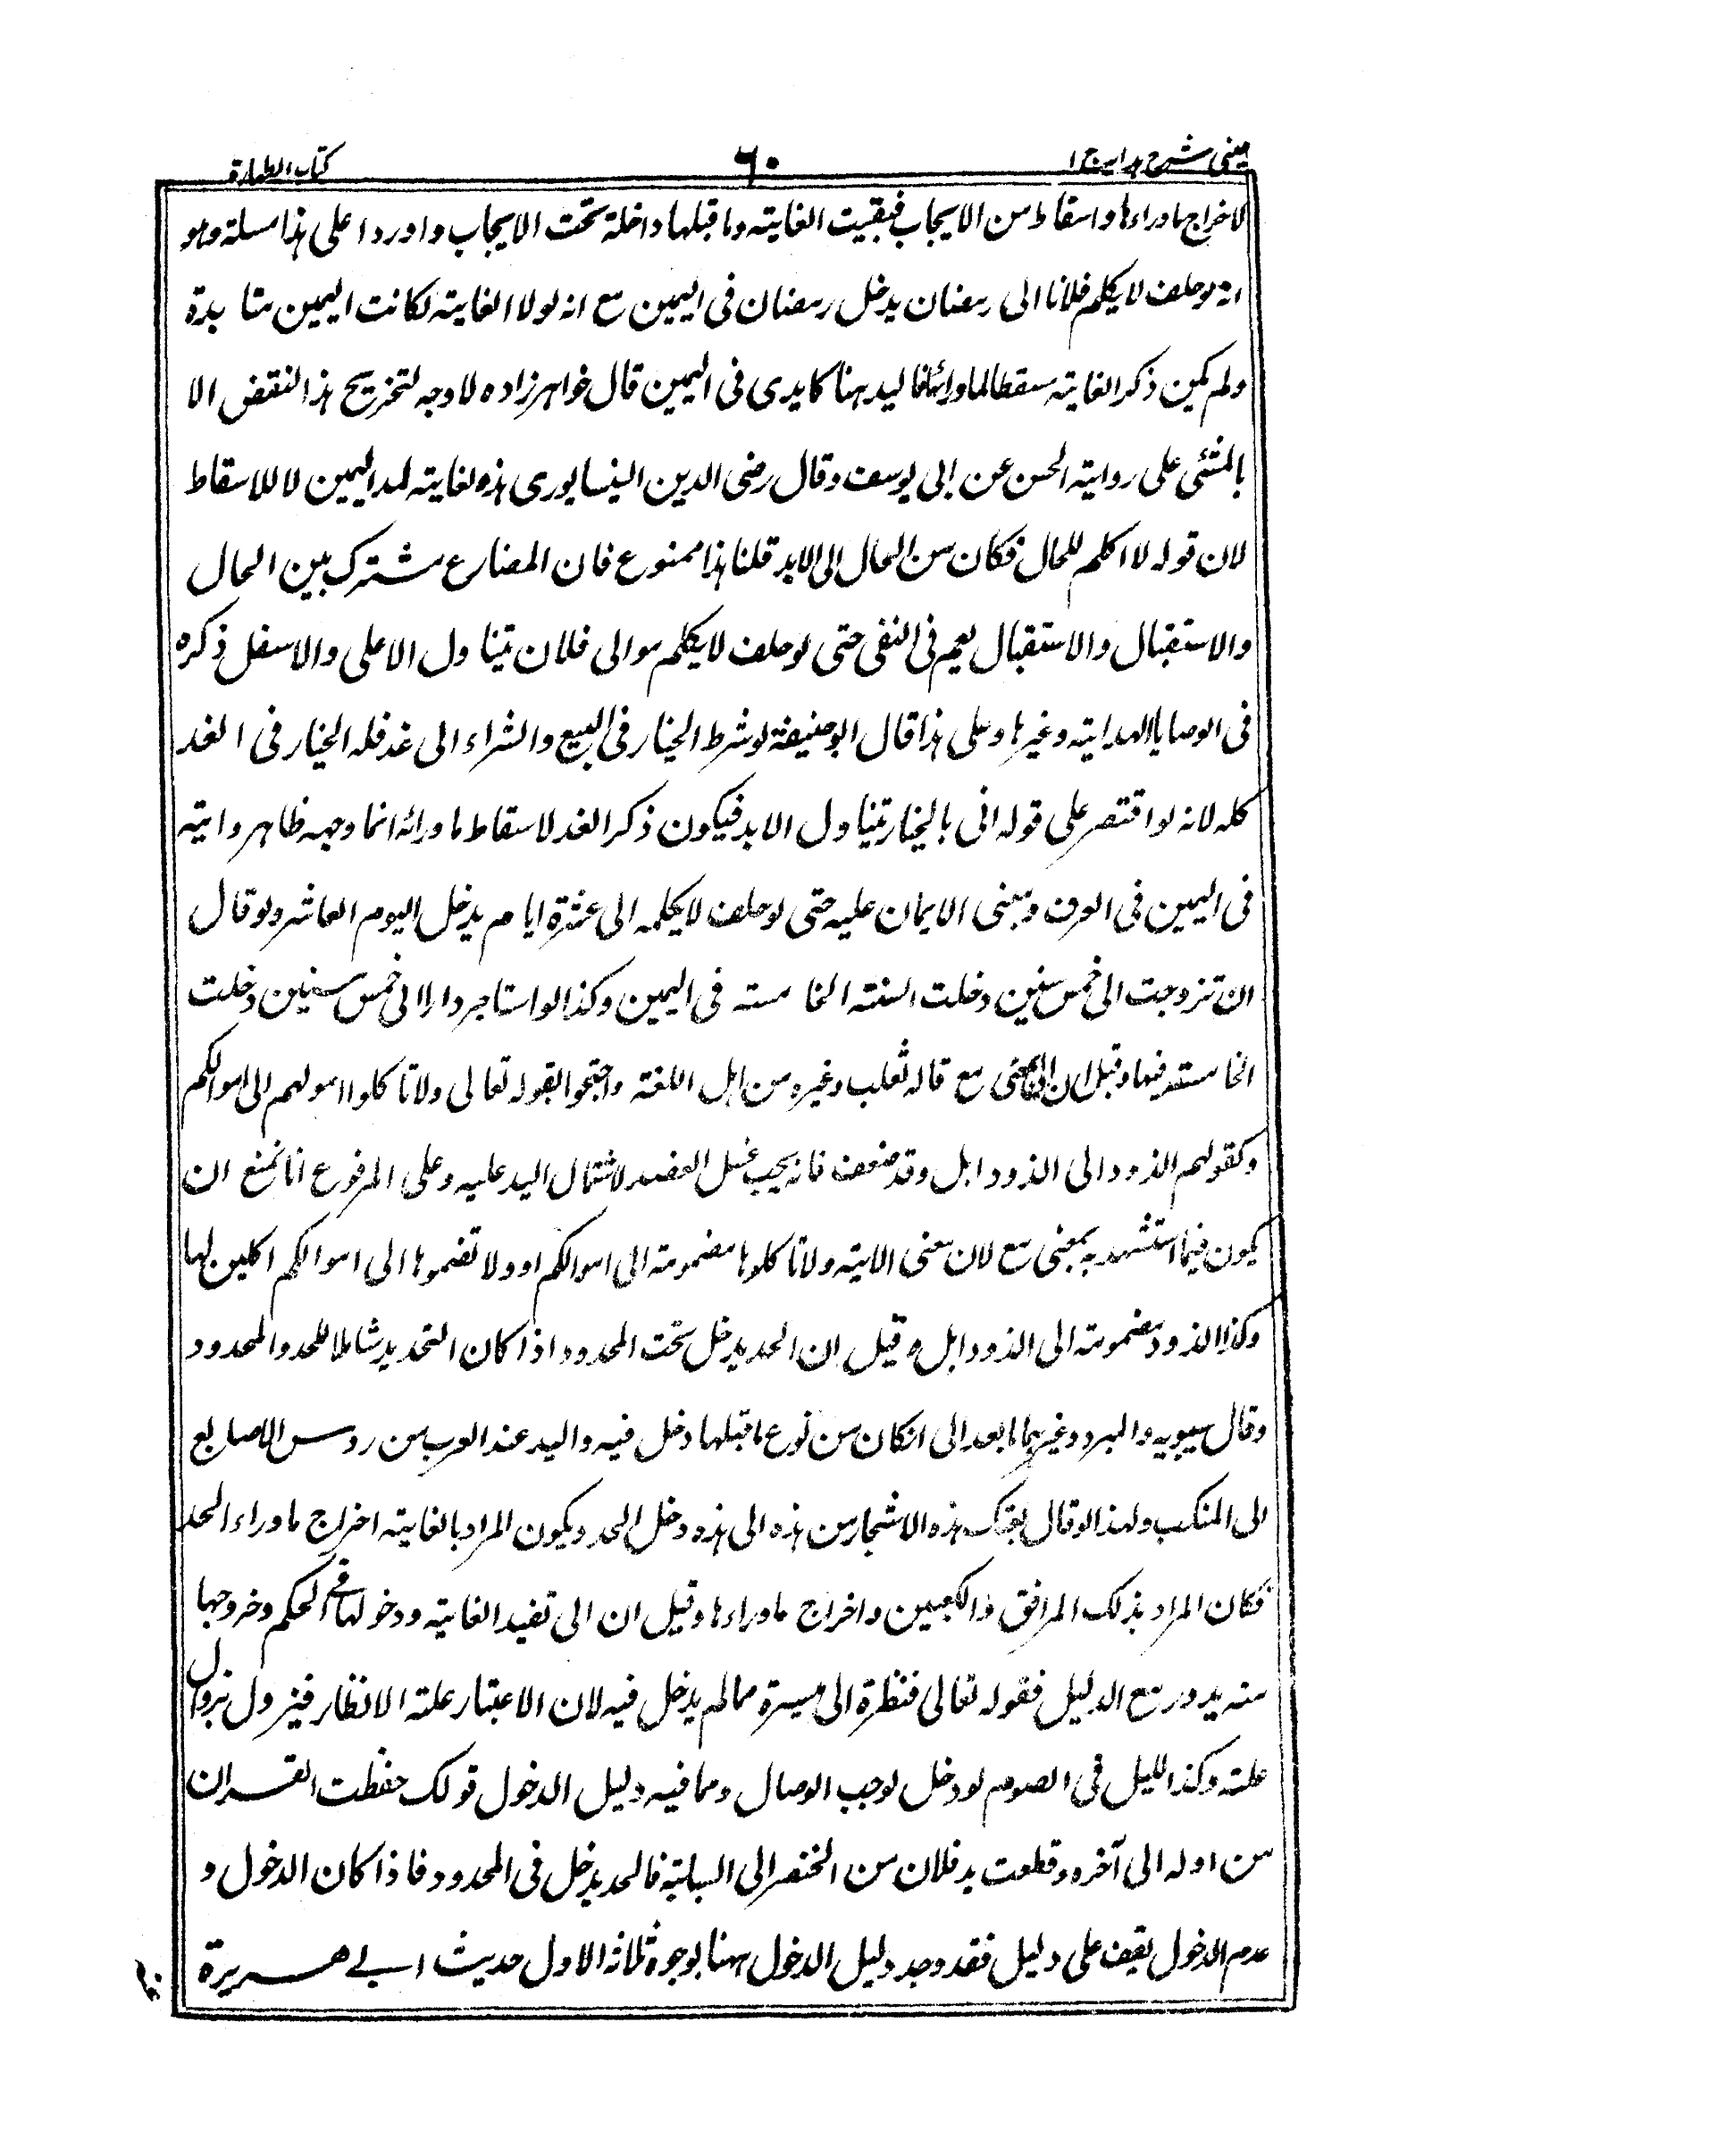 عینی شرح ہدایہ ج ۱
۶۰
کتاب الطہارة
لاخراج ماوراءها واسقاط من الایجاب فبقیت الغایته وما قبلها داخلة تحت الایجاب واوردا علی هذا مسلة وهو
انه لو حلف لا یکلم فلانا الی رمضان یدخل رمضان فی الیمین مع انه لولا الغایته لکانت الیمین متا بدة
ولم یکن ذکر الغایته مسقطا لما ورائها فالید ہنا کا یدی فی الیمین قال خواہرزاده لا وجه لتخریج هذا النقض الا
بالمنئی علی روایته الحسن عن ابی یوسف وقال رضی الدین النیسابوری هذه لغایته لمد الیمین لا للاسقاط
لان قوله لا اکلم للحال فکان من الحال الی الابد قلنا هذا ممنوع فان المضارع مشترک بین الحال
والاستقبال والاستقبال یعم فی النفی حتی لو حلف لا یکلم موالی فلان یتناول الاعلی والاسفل ذکره
فی الوصایا الهدایته وغیرها وعلی هذا قال ابو حنیفة لو شرط الخیار فی البیع والشراء الی غد فله الخیار فی الغد
کله لانه لو اقتصر علی قوله انی بالخیار یتناول الابد فیکون ذکر الغد لاسقاط ماورائه انما وجهه ظاهر وایته
فی الیمین فی العرف ومبنی الایمان علیه حتی لو حلف لا یکلمه الی عشرة ایام یدخل الیوم العاشر ولو قال
ان تزوجت الی خمس سنین دخلت السنته الخامسته فی الیمین وکذا لو استاجر دارا الی خمس سنین دخلت
الخامسته فیها وقیل ان الی بمعنی مع قاله ثعلب وغیره من اهل اللغته واحتجوا بقوله تعالی ولا تاکلوا اموالهم الی اموالکم
وکقولهم الذود الی الذود ابل وقد ضعف فانه یجب غسل العضد لاشتمال الید علیه وعلی المرفوع انا نمنع ان
یکون فیما استشهد به بمعنی مع لان معنی الایته ولا تاکلوها مضمومته الی اموالکم او ولا تضموها الی اموالکم اکلین لها
وکذا الذود مضمومته الی الذود ابل وقیل ان الحد یدخل تحت المحدود اذا کان التحدید شاملا للحد والمحدود
وقال سیبویه والمبرد وغیرہما ما بعد الی انکان من نوع ما قبلها دخل فیه والید عند العرب من روس الاصابع
الی المنکب ولهذا لو قال بعتک هذه الاشجار من هذه الی هذه دخل الحد ویکون المراد بالغایته اخراج ماوراء الحد
فکان المراد بذلک المرافق والکعبین واخراج ماوراءها وقیل ان الی تفید الغایته ودخولها فی الحکم وخروجها
منه یدور مع الدلیل فقوله تعالی فنظرة الی میسرة مما لم یدخل فیه لان الاعتبار علته الانظار فیزول بزوال
علته وکذا اللیل فی الصوم لو دخل لوجب الوصال ومما فیه دلیل الدخول قولک حفظت القران
من اوله الی آخره وقطعت ید فلان من الخنصر الی السبابته فالحد یدخل فی المحدود فاذا کان الدخول و
عدم الدخول یقف علی دلیل فقد وجد دلیل الدخول ہہنا بوجوه ثلاثه الاول حدیث ابی هریرة